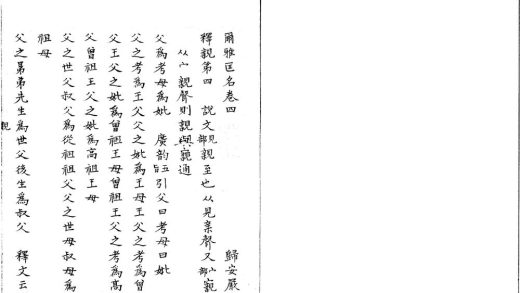 爾雅匡名卷四
歸安嚴
釋親第四 說文見部親至也从見亲聲又宀部寴
从宀親聲則親與寴通
父爲考母爲妣 廣韵五旨引父曰考母曰妣
父之考爲王父父之妣爲王母王父之考爲曾
祖王父王父之妣爲曾祖王母曾祖王父之考爲高
父曾祖王父之妣爲高祖王母
父之世父叔父爲從祖祖父父之世母叔母爲
祖母
父之晜弟先生爲世父後生爲叔父 釋文云
親